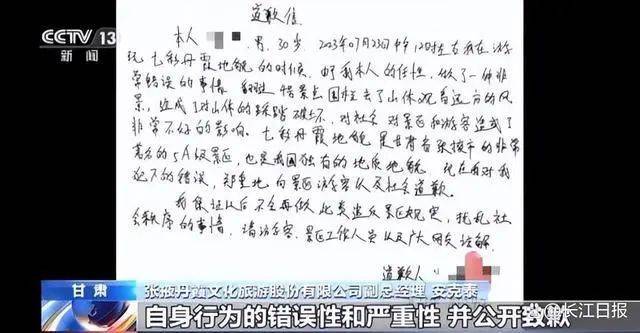 CCTV 13
新闻
道歉信
本人 男，30岁 2023年07月23日中午12时左右我在游
玩七彩丹霞地貌的时候，由于我本人的任性，做了一件非
常错误的事情 翻越 景点围栏去了山体观看远方的风
景，造成了对山体的踩踏破坏，对社会 对景区和游客造成了
非常不好的影响。七彩丹霞地貌 是甘肃省张掖市的非常
著名的5A级景区，也是我国独有的地质地貌 现在面对我
犯下的错误，郑重地向景区游客以及社会道歉。
我保证以后不会再做此类违反景区规定，扰乱社
会秩序的事情，请游客、景区工作人员以及广大网友谅解
道歉人
甘肃
张掖丹霞文化旅游股份有限公司副总经理 安克泰
自身行为的错误性和严重性 并公开致歉
@长江日报